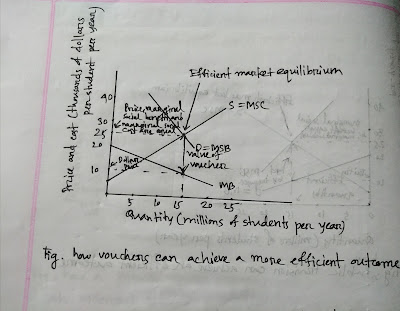 Price and cost (thousands of dollars
per student per year)
Efficient market equilibrium
40
30
25
20
10
Price, marginal
social benefit and
marginal social
cost are equal
S = MSC
D = MSB
value of
voucher
Dollar
price
MB
5 10 15 20 25
Quantity (millions of students per year)
Fig. how vouchers can achieve a more efficient outcome